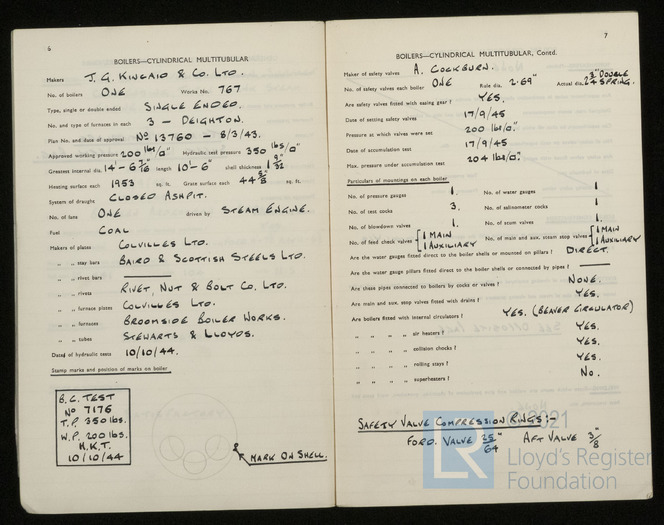 6
BOILERS—CYLINDRICAL MULTITUBULAR
Makers J. G. KINCAID & CO. LTD.
No. of boilers ONE Works No. 767
Type, single or double ended SINGLE ENDED.
No. and type of furnaces in each 3 — DEIGHTON.
Plan No. and date of approval Nº 13760 — 8/3/43.
Approved working pressure 200 lbs/□" Hydraulic test pressure 350 lbs/□"
Greatest internal dia. 14'-6 7/16" length 10'-6" shell thickness 1 9/32"
Heating surface each 1953 sq. ft. Grate surface each 44 5/8 sq. ft.
System of draught CLOSED ASHPIT.
No. of fans ONE driven by STEAM ENGINE.
Fuel COAL
Makers of plates COLVILLES LTD.
„ „ stay bars BAIRD & SCOTTISH STEELS LTD.
„ „ rivet bars
„ „ rivets RIVET, NUT & BOLT CO. LTD.
„ „ furnace plates COLVILLES LTD.
„ „ furnaces BROOMSIDE BOILER WORKS.
„ „ tubes STEWARTS & LLOYDS.
Dates of hydraulic tests 10/10/44.
Stamp marks and position of marks on boiler
B.C. TEST
Nº 7176
T.P. 350 lbs.
W.P. 200 lbs.
H.K.T.
10/10/44
MARK ON SHELL.
7
BOILERS—CYLINDRICAL MULTITUBULAR, Contd.
Maker of safety valves A. COCKBURN.
No. of safety valves each boiler ONE Rule dia. 2·69" Actual dia. 2 3/4" DOUBLE SPRING.
Are safety valves fitted with easing gear? YES.
Date of setting safety valves 17/9/45
Pressure at which valves were set 200 lbs/□".
Date of accumulation test 17/9/45
Max. pressure under accumulation test 204 lbs/□".
Particulars of mountings on each boiler
No. of pressure gauges 1. No. of water gauges 1
No. of test cocks 3. No. of salinometer cocks 1
No. of blowdown valves 1. No. of scum valves 1.
No. of feed check valves { 1 MAIN 1 AUXILIARY No. of main and aux. steam stop valves { 1 MAIN 1 AUXILIARY
Are the water gauges fitted direct to the boiler shells or mounted on pillars? DIRECT.
Are the water gauge pillars fitted direct to the boiler shells or connected by pipes?
Are these pipes connected to boilers by cocks or valves? NONE.
Are main and aux. stop valves fitted with drains? YES.
Are boilers fitted with internal circulators? YES. (BEAVER CIRCULATOR)
„ „ „ „ air heaters? YES.
„ „ „ „ collision chocks? YES.
„ „ „ „ rolling stays? YES.
„ „ „ „ superheaters? NO.
SAFETY VALVE COMPRESSION RINGS:-
FORD. VALVE 25/64" AFT VALVE 3/8"
© 2021
LR
Lloyd's Register
Foundation